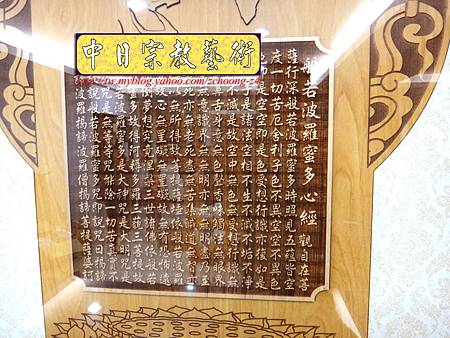 中日宗教藝術
般若波羅蜜多心經 觀自在菩
薩行深般若波羅蜜多時照見五蘊皆空
度一切苦厄舍利子色不異空空不異色
即是空空即是色受想行識亦復如是
子是諸法空相不生不滅不垢不淨
不減是故空中無色無受想行識無
鼻舌身意無色聲香味觸法無眼界
無意識界無無明亦無無明盡乃至
死亦無老死盡無苦集滅道無智亦
以無所得故菩提薩埵依般若波羅
故心無罣礙無罣礙故無有恐怖遠
倒夢想究竟涅槃三世諸佛依般若
蜜多故得阿耨多羅三藐三菩提故
若波羅蜜多是大神咒是大明咒是
是無等等咒能除一切苦真實不
說般若波羅蜜多咒即說咒曰揭諦
波羅揭諦波羅僧揭諦菩提薩婆訶